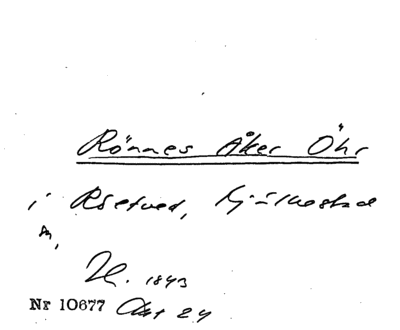 Rönnes Åker Öhr
i Röetved, Kjälkestad
H. 1843
Nr 10677 Akt 24